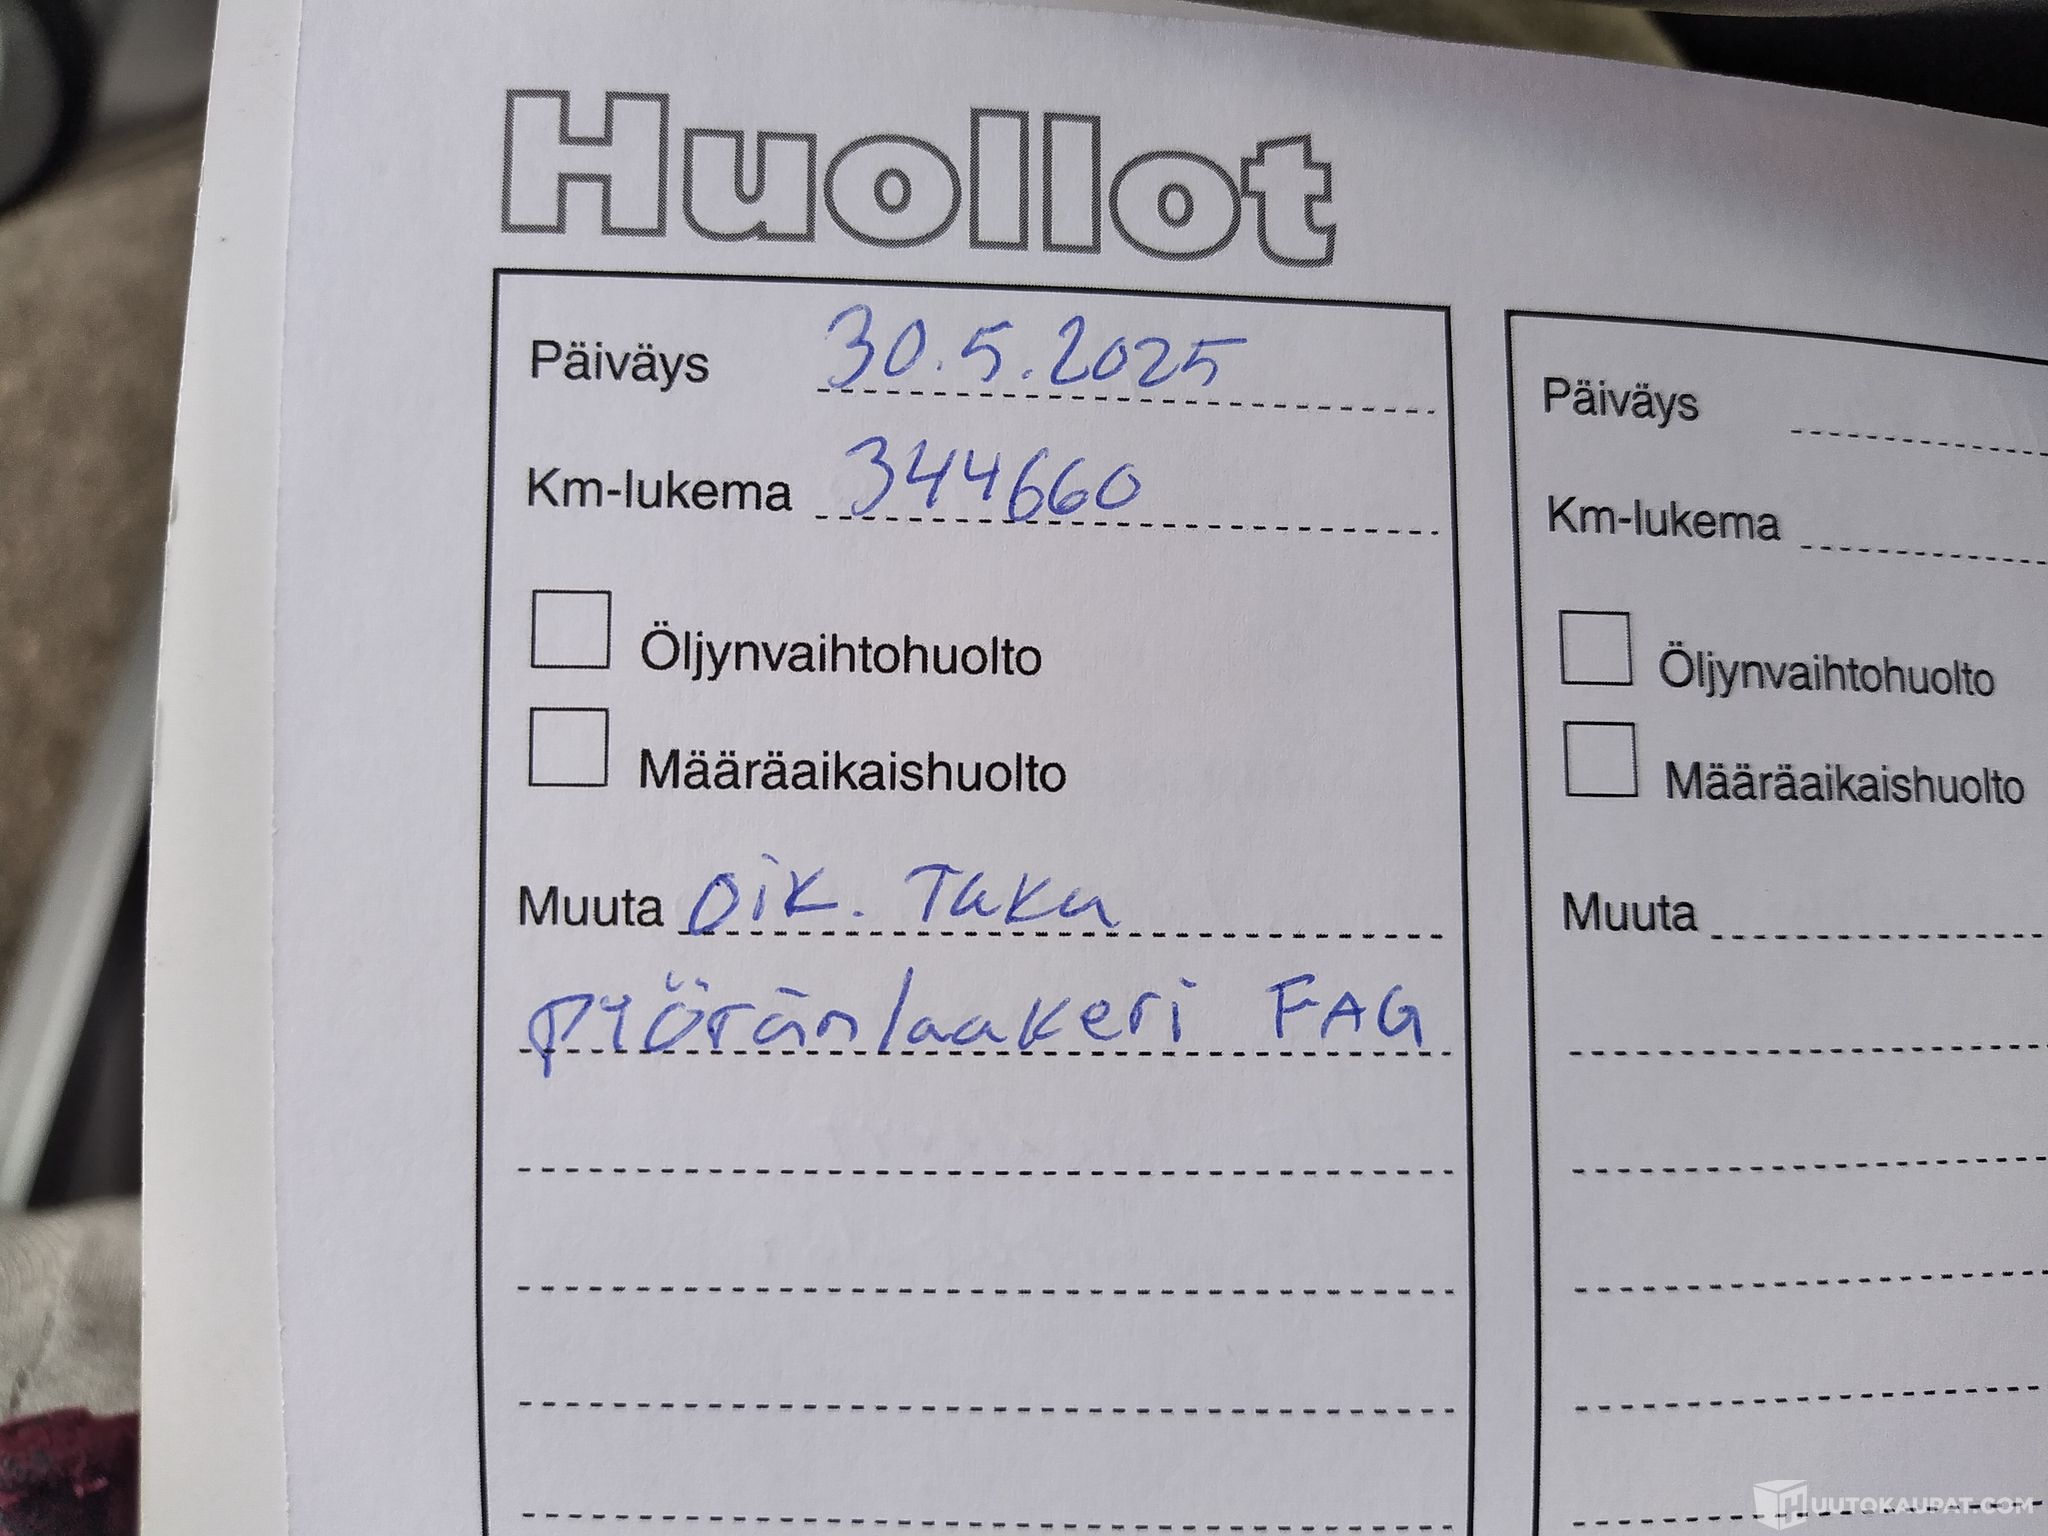 Huollot
Päiväys 30.5.2025
Km-lukema 344660
Öljynvaihtohuolto
Määräaikaishuolto
Muuta oik. Taka
pyöränlaakeri FAG
Päiväys
Km-lukema
Öljynvaihtohuolto
Määräaikaishuolto
Muuta
HUUTOKAUPAT.COM